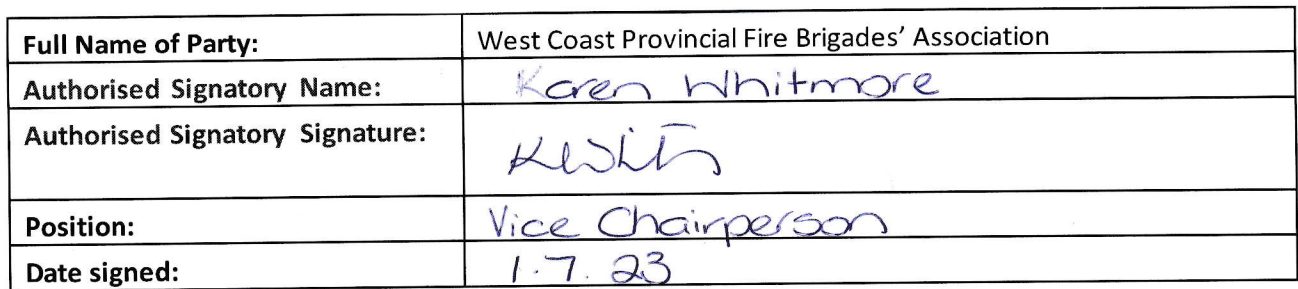 Full Name of Party: West Coast Provincial Fire Brigades' Association
Authorised Signatory Name: Karen Whitmore
Authorised Signatory Signature:
Position: Vice Chairperson
Date signed: 1.7.23